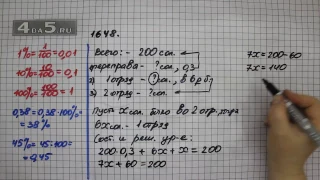 4DA5.RU
1% = 1/100 = 0,01
10% = 10/100 = 0,1
100% = 100/100 = 1
0,38 = 0,38·100% =
= 38%
45% = 45:100 =
= 0,45
1648.
Всего: - 200 сол.
- ? сол., 0,3
2) 1 отряд - ? сол., в 6 р. б.
3) 2 отряд - ? сол.
Пусть x сол. было во 2 отр., тогда
6x сол. - 1 отряд
Сост. и реш. ур-е:
200·0,3 + 6x + x = 200
7x + 60 = 200
7x = 200 - 60
7x = 140